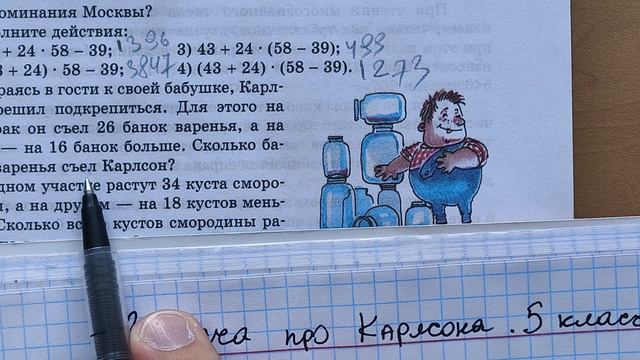 оминания Москвы?
лните действия:
+ 24 · 58 – 39; 1396 3) 43 + 24 · (58 – 39); 499
3 + 24) · 58 – 39; 3847 4) (43 + 24) · (58 – 39). 1273
раясь в гости к своей бабушке, Карл-
решил подкрепиться. Для этого на
рак он съел 26 банок варенья, а на
— на 16 банок больше. Сколько ба-
варенья съел Карлсон?
дном участке растут 34 куста сморо-
, а на другом — на 18 кустов мень-
Сколько всего кустов смородины ра-
ча про Карлсона. 5 класс